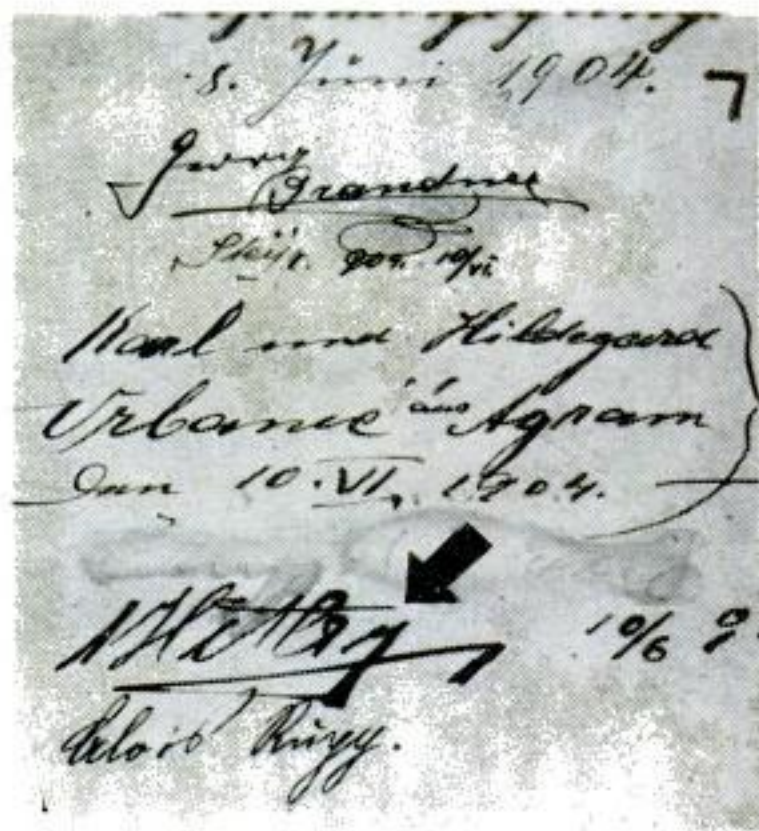 5. Juni 1904.
Georg
Grandner
10/VI
Karl und Hildegard
Urbanic aus Agram
Den 10. VI. 1904.
AHitler 10/6
Alois Rupp.